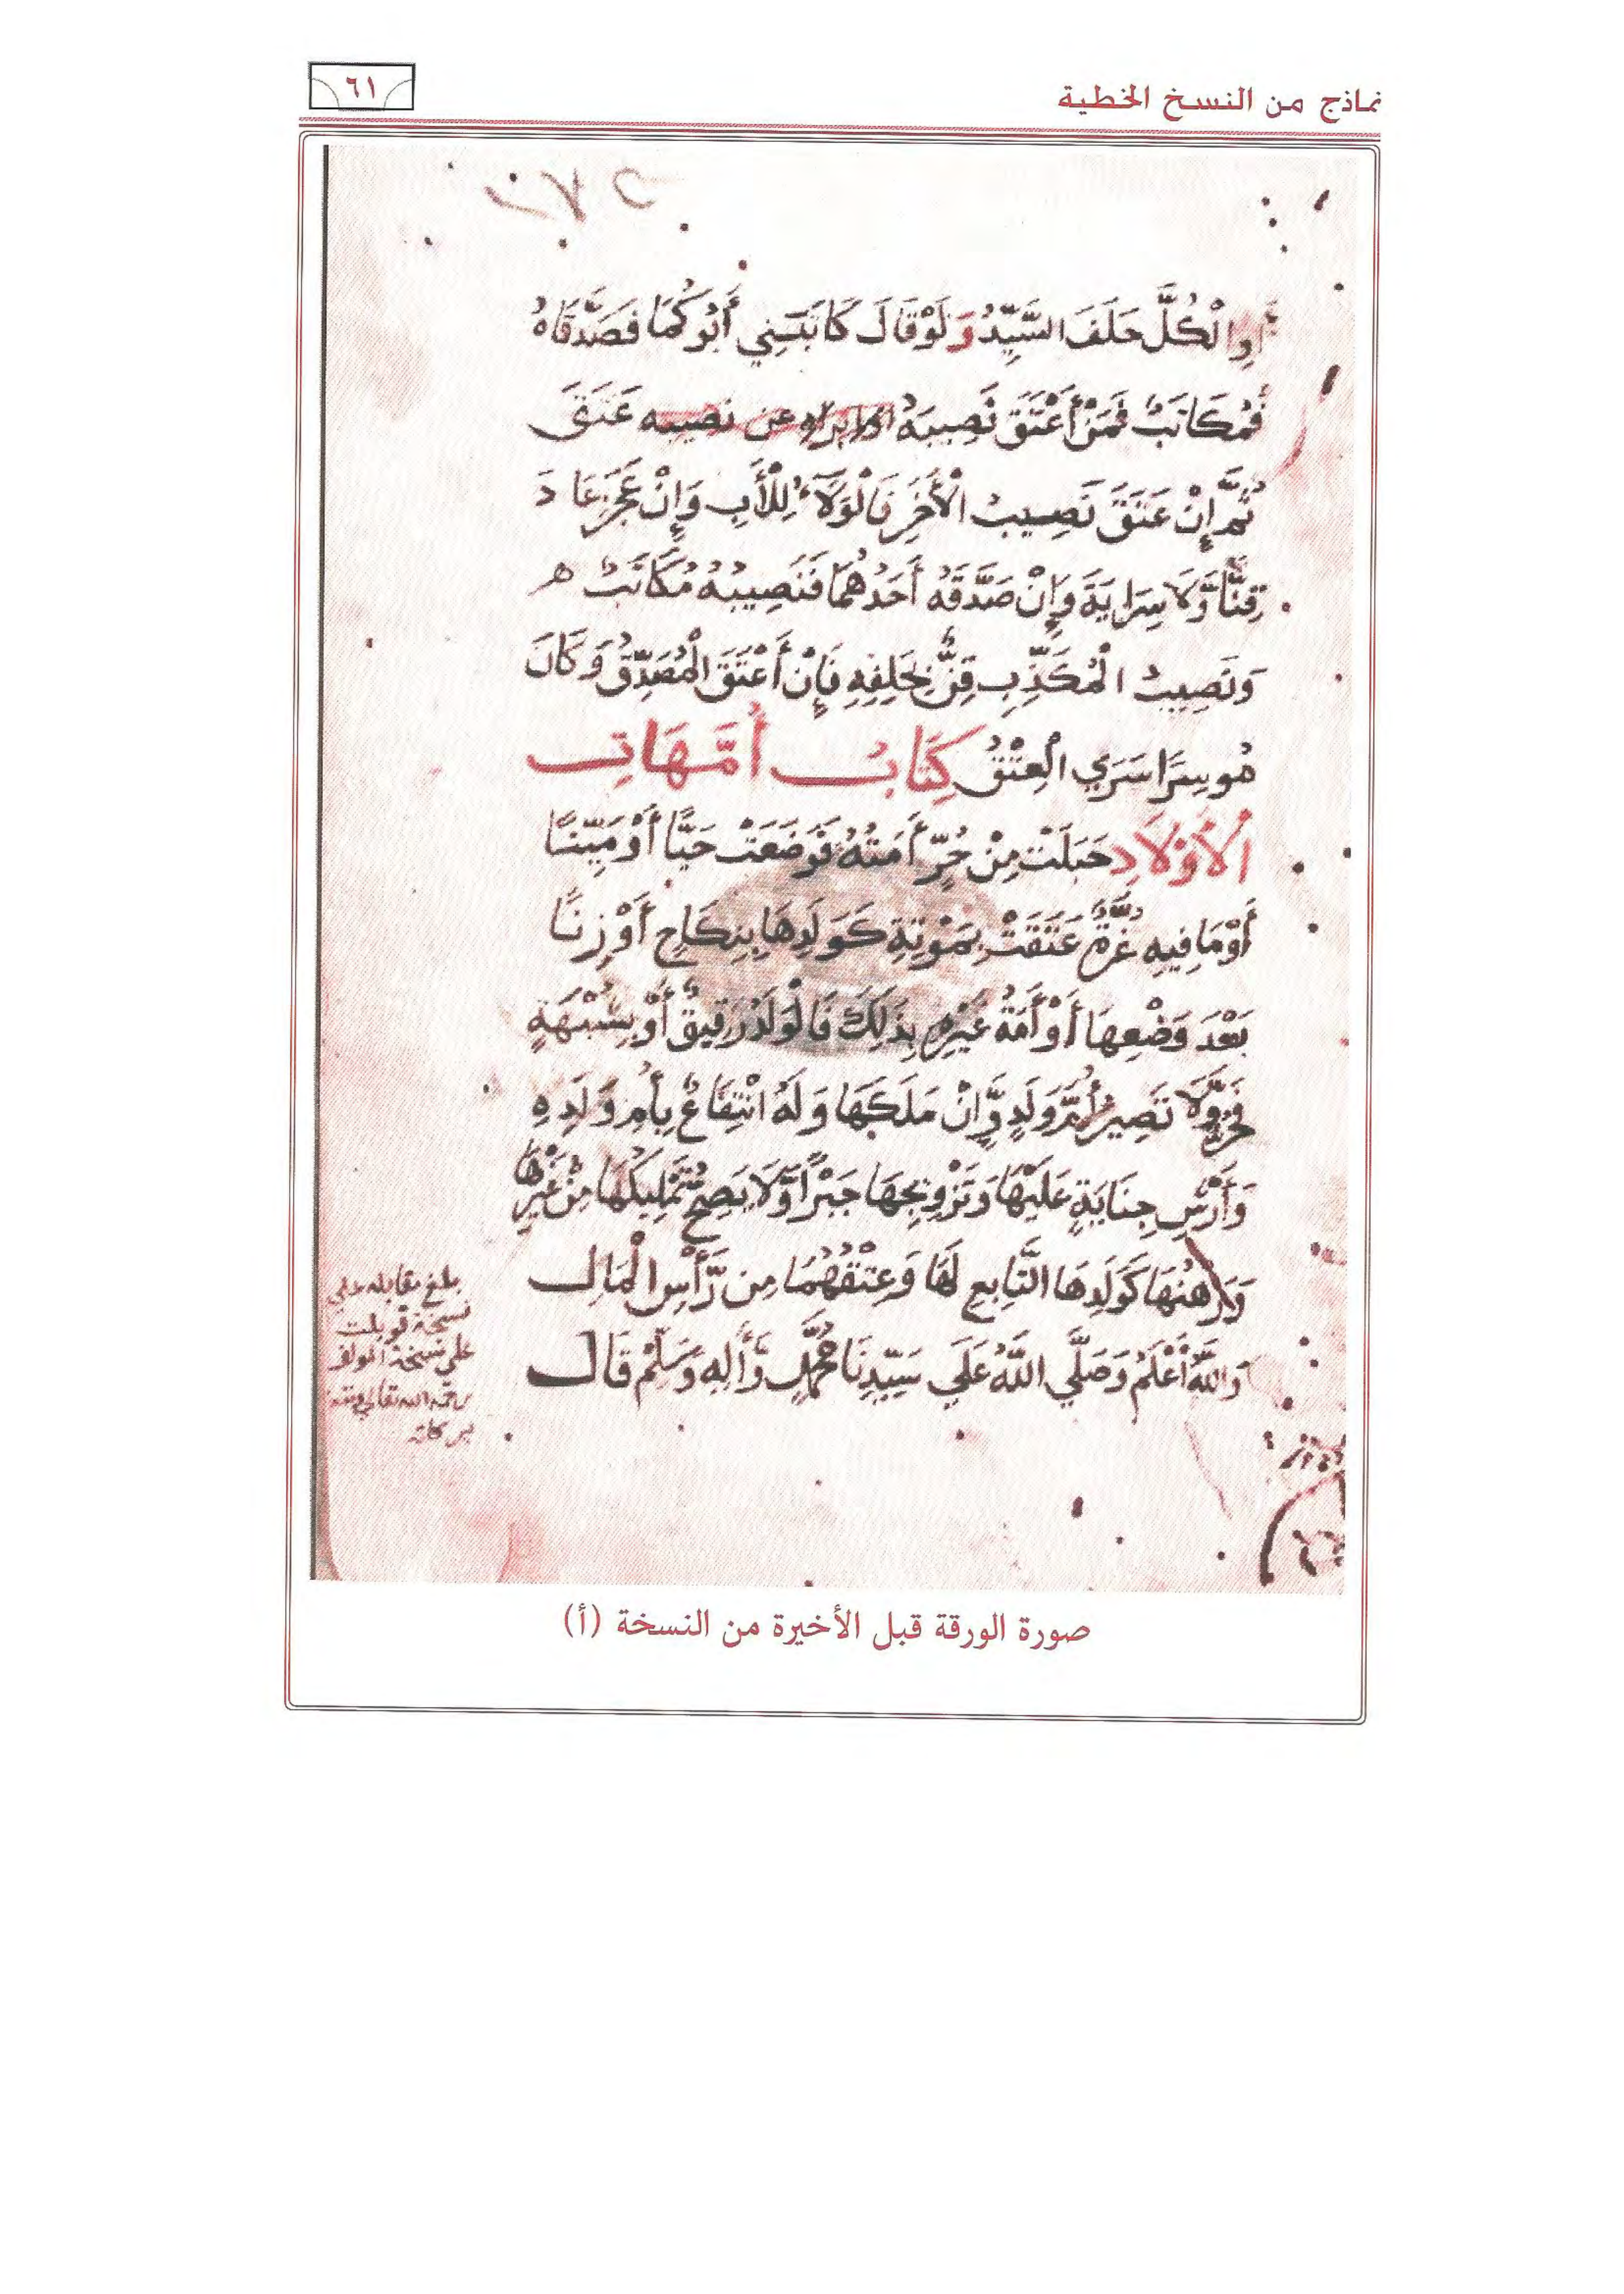 نماذج من النسخ الخطية
٦١
أَوِ الْكُلَّ حَلَفَ السَّيِّدُ وَلَوْ قَالَ كَاتَبَنِي أَبُوكُمَا فَصَدَّقَاهُ
فَمُكَاتَبٌ فَمَنْ أَعْتَقَ نَصِيبَهُ او ابراه عن نصيبه عَتَقَ
ثُمَّ إِنْ عَتَقَ نَصِيبُ الْآخَرِ فَالْوَلَاءُ لِلْأَبِ وَإِنْ عَجَزَ عَادَ
قِنًّا وَّلَا سِرَايَةَ وَإِنْ صَدَّقَهُ أَحَدُهُمَا فَنَصِيبُهُ مُكَاتَبٌ ه
وَنَصِيبُ الْمُكَذِّبِ قِنٌّ بِحَلِفِهِ فَإِنْ أَعْتَقَ الْمُصَدِّقُ وَكَانَ
مُوسِرًا سَرَي الْعِتْقُ كِتَابُ أُمَّهَاتِ
الْأَوْلَادِ حَبَلَتْ مِنْ حُرٍّ أَمَتُهُ فَوَضَعَتْ حَيًّا أَوْ مَيِّتًا
أَوْ مَا فِيهِ غُرَّةٌ عَتَقَتْ بِمَوْتِهِ كَوَلَدِهَا بِنِكَاحٍ أَوْ زِنًا
بَعْدَ وَضْعِهَا أَوْ أَمَةُ غَيْرِهِ بِذَلِكَ فَالْوَلَدُ رَقِيقٌ أَوْ بِشُبْهَةٍ
فَحُرٌّ وَّلَا تَصِيرُ أُمَّ وَلَدٍ وَّإِنْ مَلَكَهَا وَلَهُ انْتِفَاعٌ بِأُمِّ وَلَدِهِ
وَأَرْشِ جِنَايَةٍ عَلَيْهَا وَتَزْوِيجِهَا جَبْرًا وَّلَا يَصِحُّ تَمْلِيكُهَا مِنْ غَيْرِهَا
وَرَهْنُهَا كَوَلَدِهَا التَّابِعِ لَهَا وَعِتْقُهُمَا مِن رَّأْسِ الْمَالِ
وَاللَّهُ أَعْلَمُ وَصَلَّي اللَّهُ عَلَي سَيِّدِنَا مُحَمَّدٍ وَّأَلِهِ وَسَلَّمْ قَالَ
بلغ مقابله علي
نسخة قوبلت
علي نسخة المولف
رحمه الله تعالي
صورة الورقة قبل الأخيرة من النسخة (أ)